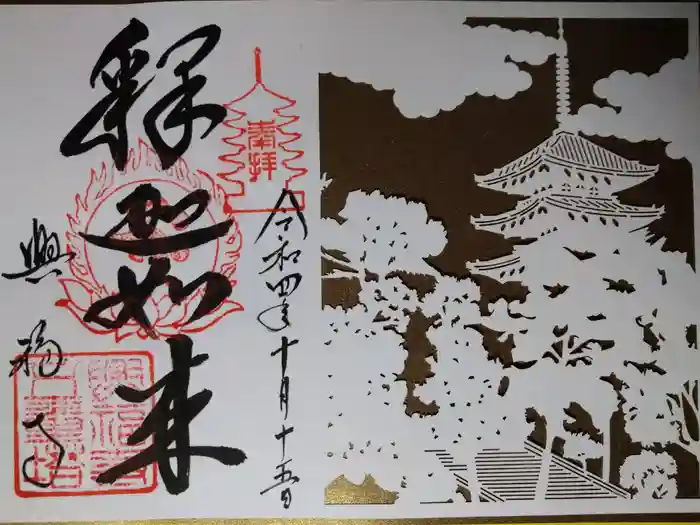 奉拝
令和四年十月十五日
釋迦如来
興福寺